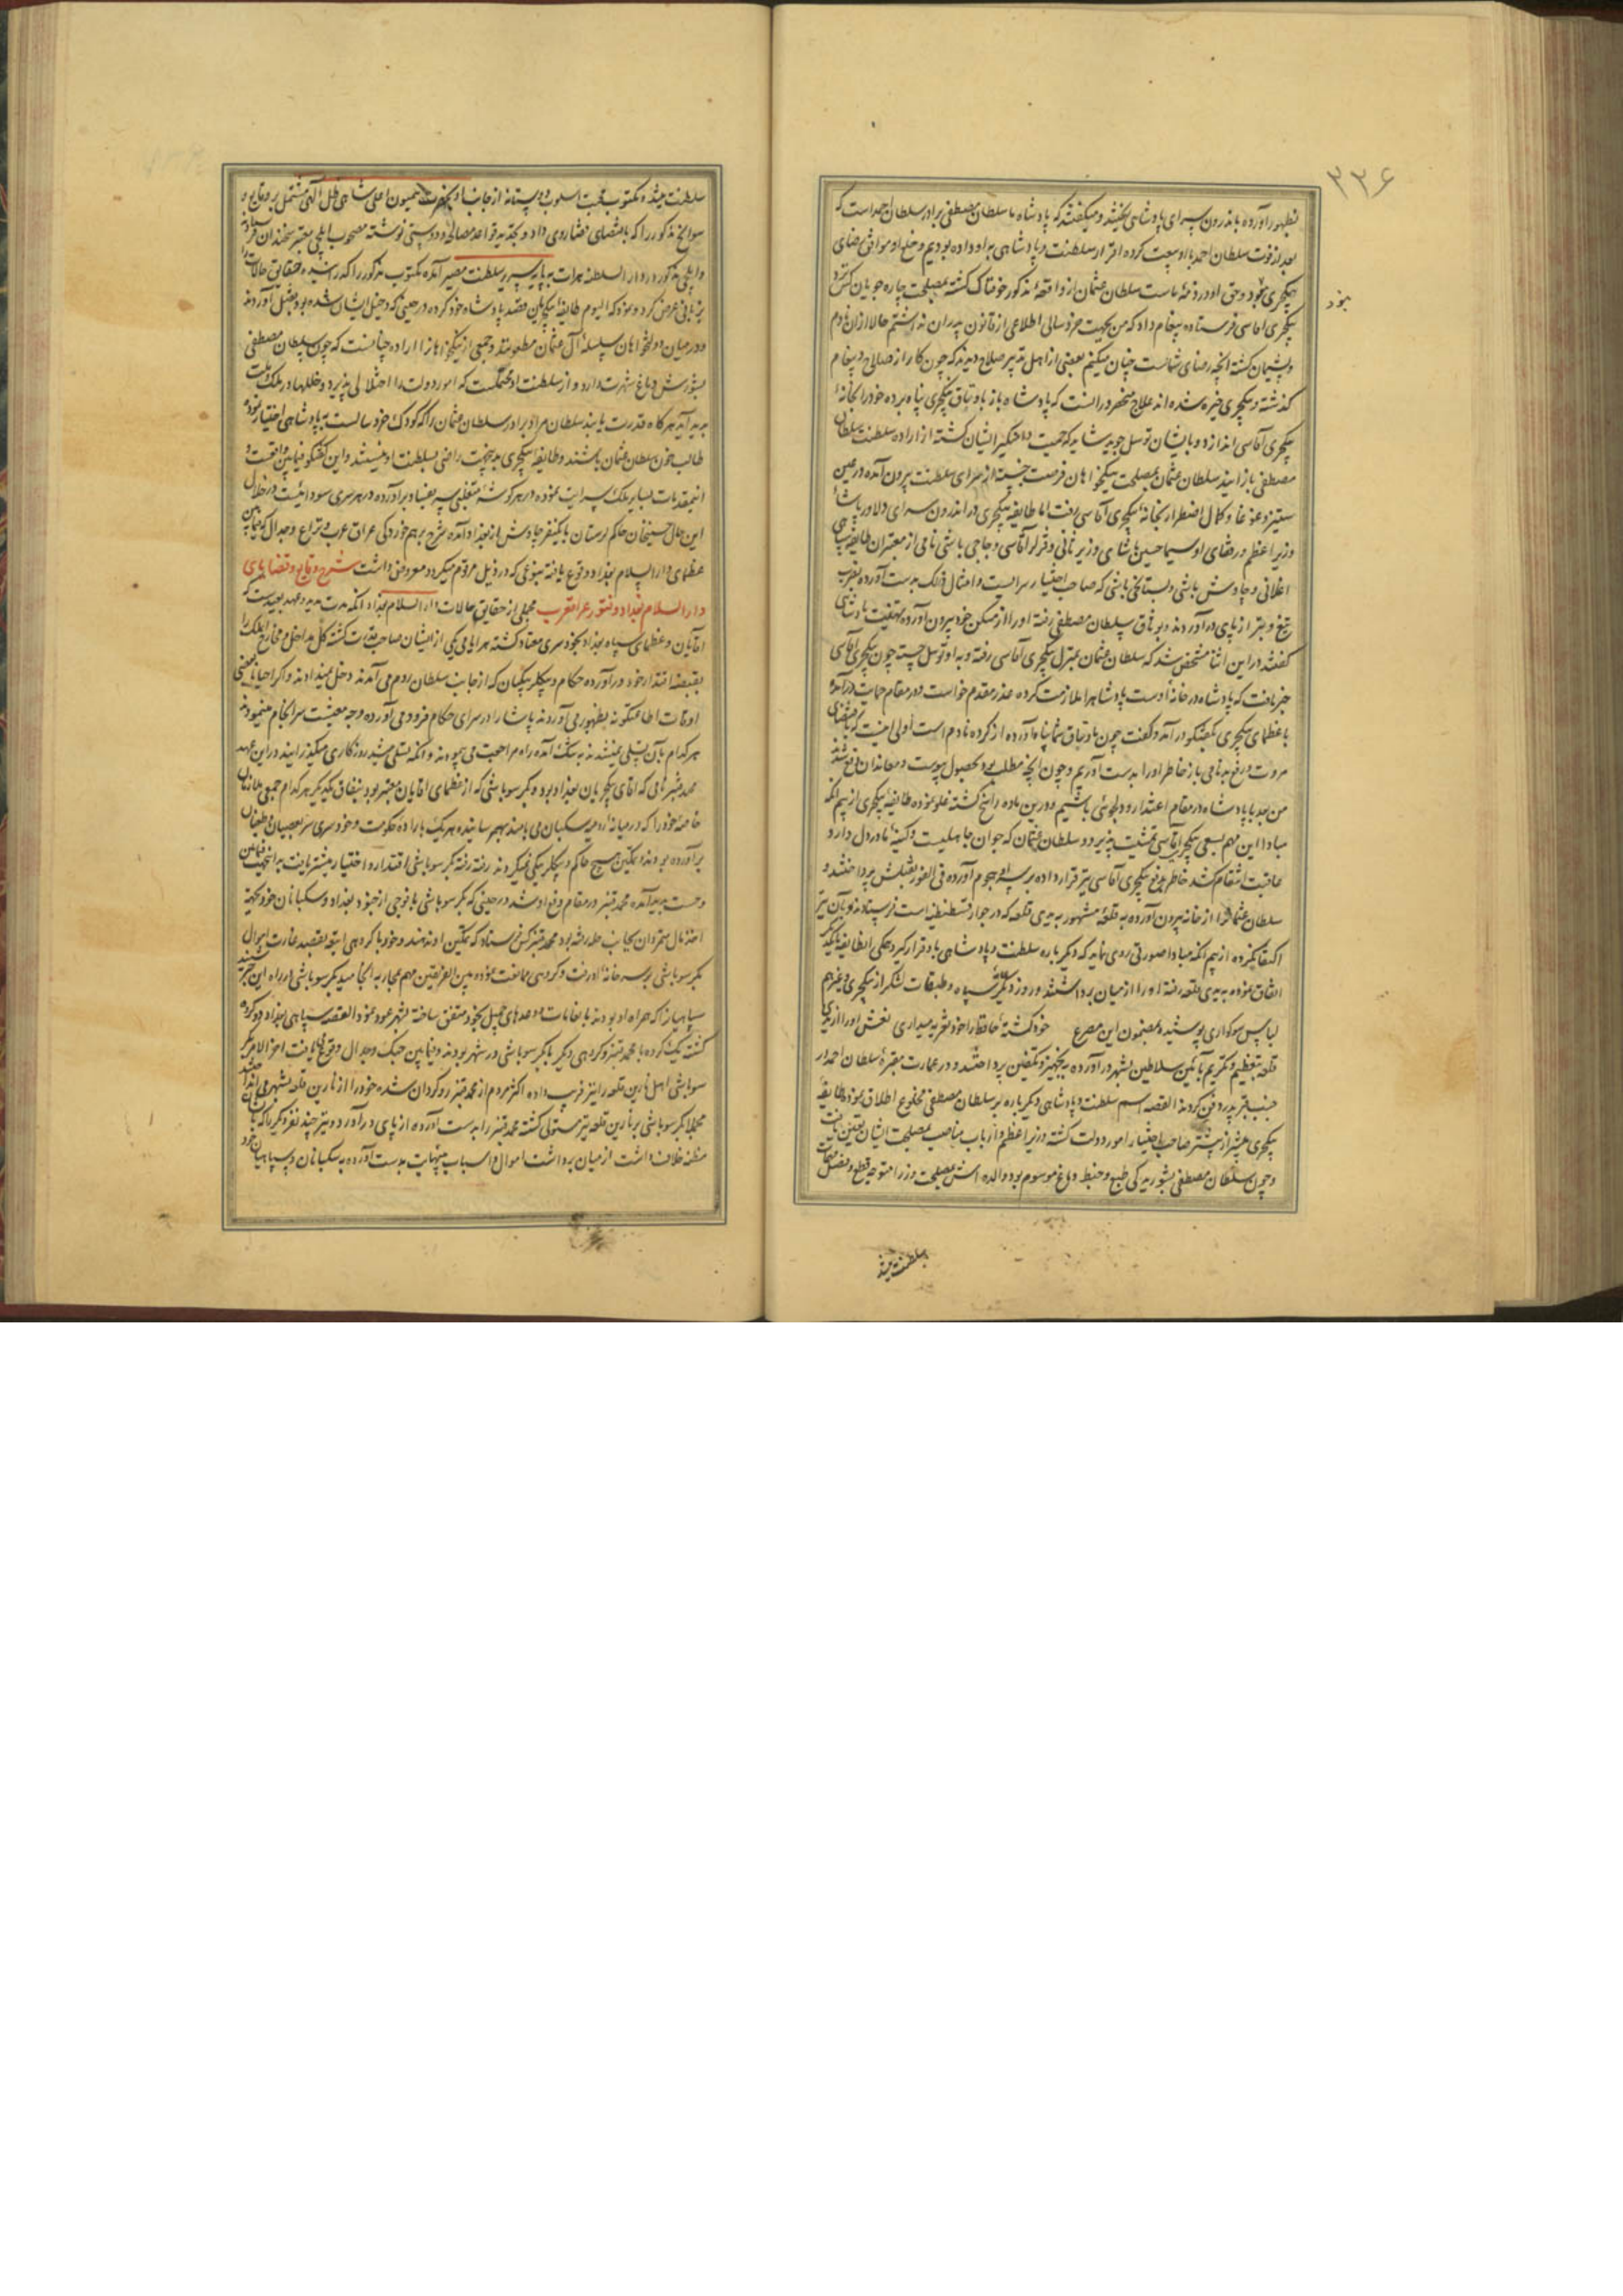 ۳۳۶
بظهور آورده باندرون سرای پادشاهی ریختند و میگفتند که پادشاه ما سلطان مصطفی برادر سلطان احمد است که
بعد از فوت سلطان احمد با او بیعت کرده اقرار سلطنت و پادشاهی به او داده بودیم و خلع او موافق رضای
ینکچری نبود و حق او در ذمهٔ ماست سلطان عثمان از واقعهٔ مذکور خوفناک گشته بمصلحت چاره جویان کس نزد
ینکچری اقاسی فرستاده پیغام داد که من بجهت خرد سالی اطلاعی از قانون پدران نداشتم حالا از ان نادم
و پشیمان گشته انچه رضای شماست چنان میکنم بعضی از اهل تدبیر صلاح دیدند که چون کار از صلاح و پیغام
گذشته و ینکچری خیره شده اند علاج منحصر در انست که پادشاه باز باوتاق ینکچری پناه برده خود را بخانهٔ
ینکچری آقاسی اندازد و بایشان توسل جوید شاید که حمیت دامنگیر ایشان گشته از اراده سلطنت سلطان
مصطفی باز ایند سلطان عثمان بمصلحت نیکخواهان فرصت جسته از سرای سلطنت بیرون آمده در عین
ستیز و غوغا و کمال اضطرار بخانهٔ ینکچری آقاسی رفت اما طایفه ینکچری در اندرون سرای دلاور پاشا
وزیر اعظم و رفقای او سیما حسین پاشای وزیر ثانی و قزلر آقاسی و حاجی باشی نامی از معتبران طایفه
اغلانی و چاوش باشی و بستانجی باشی که صاحب اختیار سراییست و امثال ذلک بدست آورده بضرب
تیغ و تبر از پای در آوردند و بوثاق سلطان مصطفی رفته او را از مسکن خود بیرون آورده تهنیت پادشاهی
گفتند در این اثنا مشخص شد که سلطان عثمان بمنزل ینکچری آقاسی رفته و به او توسل جسته چون ینکچری آقاسی
خبر یافت که پادشاه در خانهٔ اوست پادشاه را ملازمت کرده عذر مقدم خواست و در مقام حمایت درآمده
با عظمای ینکچری بگفتگو در آمد و گفت چون باوتاق شما پناه آورده از کرده نادم است اولی انیست که بمقتضای
مروت و رفع بدنامی باز خاطر او را بدست آوریم و چون انچه مطلب بود بحصول پیوست و معاندان دفع شدند
من بعد با پادشاه در مقام اعتذار و دلجوئی باشیم و درین ماده راسخ گشته غلو نموده طایفه ینکچری از بیم انکه
مبادا این مهم بسعی ینکچری آقاسی تمشیت پذیرد و سلطان عثمان که جوان جاهلیست و کینهٔ ما در دل دارد
عاقبت انتقام کشد خاطر بدفع ینکچری آقاسی نیز قرار داده بر سر او هجوم آورده فی الفور بقتلش پرداختند و
سلطان عثمان را از خانه بیرون آورده به قلعهٔ مشهور به یدی قلعه که در جوار قسطنطنیه است فرستادند و بان نیز
اکتفا نکرده از بیم انکه مبادا صورتی روی نماید که دیگر باره سلطنت و پادشاهی باو قرار گیرد جمعی از طایفه یکدیگر
اتفاق نموده به یدی قلعه رفته او را از میان برداشتند و روز دیگر سپاه و طبقات لشکر از ینکچری و غیرهم
لباس سوکواری پوشیده بمضمون این مصرع خود کشتهٔ حافظ را خود تعزیه میداری نعش او را از یدی
قلعه بتعظیم و تکریم بآئین سلاطین بشهر در آورده بتجهیز و تکفین پرداختند و در عمارت مقبرهٔ سلطان احمد در
جنب قبر پدر دفن کردند القصه اسم سلطنت و پادشاهی دیگر باره بر سلطان مصطفی مخلوع اطلاق نموده طایفه
ینکچری بیشتر از پیشتر صاحب اختیار امور دولت گشته وزیر اعظم و ارباب مناصب بمصلحت ایشان تعیین یافت
و چون سلطان مصطفی بشوریدگی طبع و خبط دماغ موسوم بود والده اش بمصلحت وزرا متوجه قطع و فصل مهمات
سلطنت میشد
سلطنت میشد و مکتوب محبت اسلوب دوستانه از جانب او بحضرت همیون اعلی شاهی ظل الهی مشتمل بر وقایع و
سوانح مذکور را که بمقتضای قضا روی داد و تجدید قواعد مصالحه و دوستی نوشته مصحوب ایلچی معتبر سخندان فرستاد
و ایلچی مذکور در دار السلطنه هرات به پایه سریر سلطنت مصیر آمده مکتوب مذکور را گذرانیده حقایق حالات را
بزبانی عرض کرد و نمود که الیوم طایفهٔ ینکچری قصد پادشاه خود کرده در حینی که دخیل ایشان شده بود بقتل آوردند
و در میان دولتخواهان سلسلهٔ آل عثمان مطعونند و جمعی از نیکخواهان را اراده چنانست که چون سلطان مصطفی
بشورش دماغ شهرت دارد و از سلطنت او ممکنست که امور دولت را اختلالی پذیرد و خللها در ملک و ملت
پدید آید هر گاه قدرت یابند سلطان مراد برادر سلطان عثمان را که کودک خرد سالست به پادشاهی اختیار نموده
طالب خون سلطان عثمان باشند و طایفهٔ ینکچری بدینجهت راضی بسلطنت او نیستند و این گفتگو فیما بین واقعست و
اینمقدمات بسایر ملک سرایت نموده در هر گوشهٔ متغلبی سر بفساد برآورده در هر سری سودائیست در خلال
این حال حسینخان حاکم لرستان با یکنفر چاوش از بغداد آمده شرح بر هم خوردگی عراق عرب و نزاع و جدال که فیما بین
عظمای دار السلام بغداد وقوع یافته بنوعی که در ذیل مرقوم میگردد معروض داشت شرح وقایع و قضایای
دار السلام بغداد و فتور عراق عرب مجملی از حقایق حالات دار السلام بغداد انکه مدت مدید و عهد بعیدست که
اقایان و عظمای سپاه بغداد بخود سری معتاد گشته هر ایامی یکی از ایشان صاحب قدرت گشته کل مداخل و مخارج انملک را
بقبضه اقتدار خود در آورده حکام و بیکلربیکیان که از جانب سلطان روم می آمدند دخل نمیدادند و اگر احیانا بعضی
اوقات اطاعتگونه بظهور می آوردند پاشا را در سرای حکام فرود می آورده وجه معیشت سرانجام مینمودند
هر کدام بآن تسلی نمیشدند به تنگ آمده راه مراجعت می پیمودند و انکه تسلی میشد روزگاری میگذرانید در این عهد
محمد قنبر نامی که اقای ینکچریان بغداد بود و بکر سوباشی که از عظمای اقایان معتبر بود بنفاق یکدیگر هر کدام جمعی ملازمان
خاصهٔ خود را که در میانهٔ رومیه سکبان می نامند بهم رسانیده هر یک باراده حکومت و خود سری سر بعصیان و طغیان
برآورده بودند و تمکین هیچ حاکم و بیکلربیکی نمیکردند رفته رفته بکر سوباشی اقتدار و اختیار بیشتر یافت بدانجهت فیمابین
وحشت پدید آمده محمد قنبر در مقام دفع او شد در حینی که بکر سوباشی با فوجی از جنود بغداد و سکبانان خود بجهت
اخذ مال متمردان بجانب حله رفته بود محمد قنبر کس فرستاد که تمکین او ندهند و خود با گروهی انبوه بقصد غارت اموال
بکر سوباشی بر سر خانهٔ او رفت و گروهی ممانعت نموده بین الفریقین مهم بمحاربه انجامید بکر سوباشی در راه این خبر شنیده
سپاهیان را که همراه او بودند بانعامات و وعدهای جمیل بخود متفق ساخته بشهر عود نمود القصه سپاهی بغداد دو گروه
گشته یک گروه با محمد قنبر و گروهی دیگر با بکر سوباشی در شهر بودند و فیما بین جنگ و جدال وقوع می یافت اخر الامر بکر
سوباشی اهل نارین قلعه را نیز فریب داده اکثر مردم از محمد قنبر روگردان شده خود را از نارین قلعه بشهر می انداختند
مجملا بکر سوباشی بر نارین قلعه نیز مستولی گشته محمد قنبر را بدست آورده از پای در آورد و نیز چند نفر دیگر را که باو
مظنه خلاف داشت از میان برداشت اموال و اسباب بینهایت بدست آورده به سکبانان و سپاهیان خود